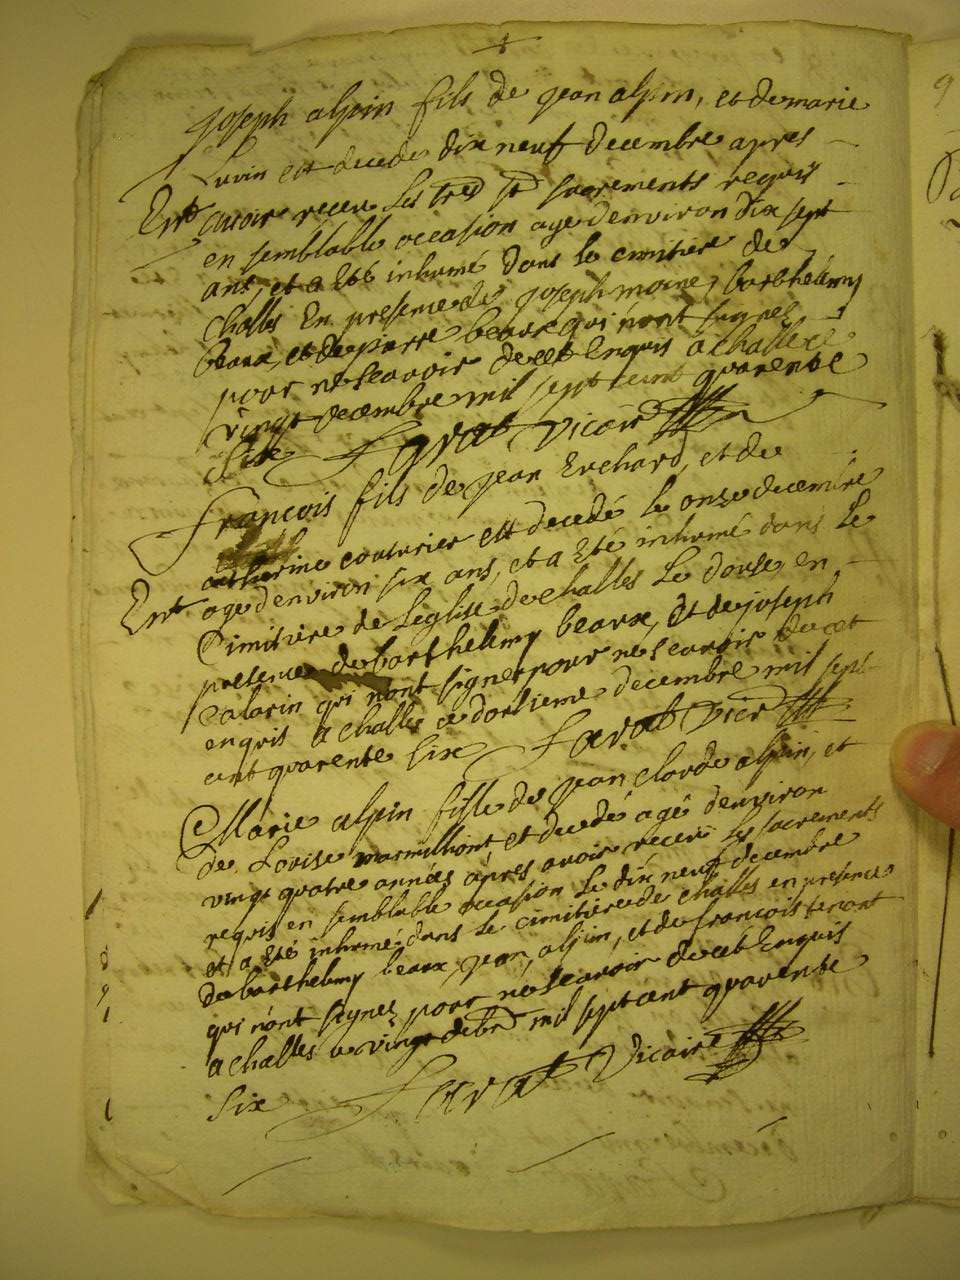 joseph alpin fils de jean alpin, et de marie
Luvin est decede dix neuf decembre apres
Ent avoir receu les tres st sacrements requis
en semblable occasion age denviron dix sept
ans, et a Eté inhumé dans le cimitiere de
challes En presence de joseph moine, barthelemy
beaux, et de pierre beaux qui nont signes
pour ne scavoir de cet Enquis a challe ce
vingt decembre mil sept cent quarente
six Favat vicaire
françois fils de jean Erchard, et de
catherine couturier est decedé le onze decembre
Ent age denviron six ans, et a Eté inhumé dans le
Cimitiere de Leglise de challes Le douse, en
presence de barthelemy beaux, et de joseph
calarin qui nont signes pour ne scavoir de cet
enquis a challes ce dousieme decembre mil sept
cent quarente six Favat vicr
Marie alpin fille de jean claude alpin, et
de Louise marmilliont, et decedé agé denviron
vingt quatre années apres avoir receu les sacrements
requis en semblable occasion le dix neuf decembre
et a Eté inhumé dans le cimitiere de challes en presence
de barthelemy beaux, jean, alpin, et de francois
qui nont signez pour ne scavoir de cet Enquis
a challes ce vingt debre mil sept cent quarente
six Favat vicaire